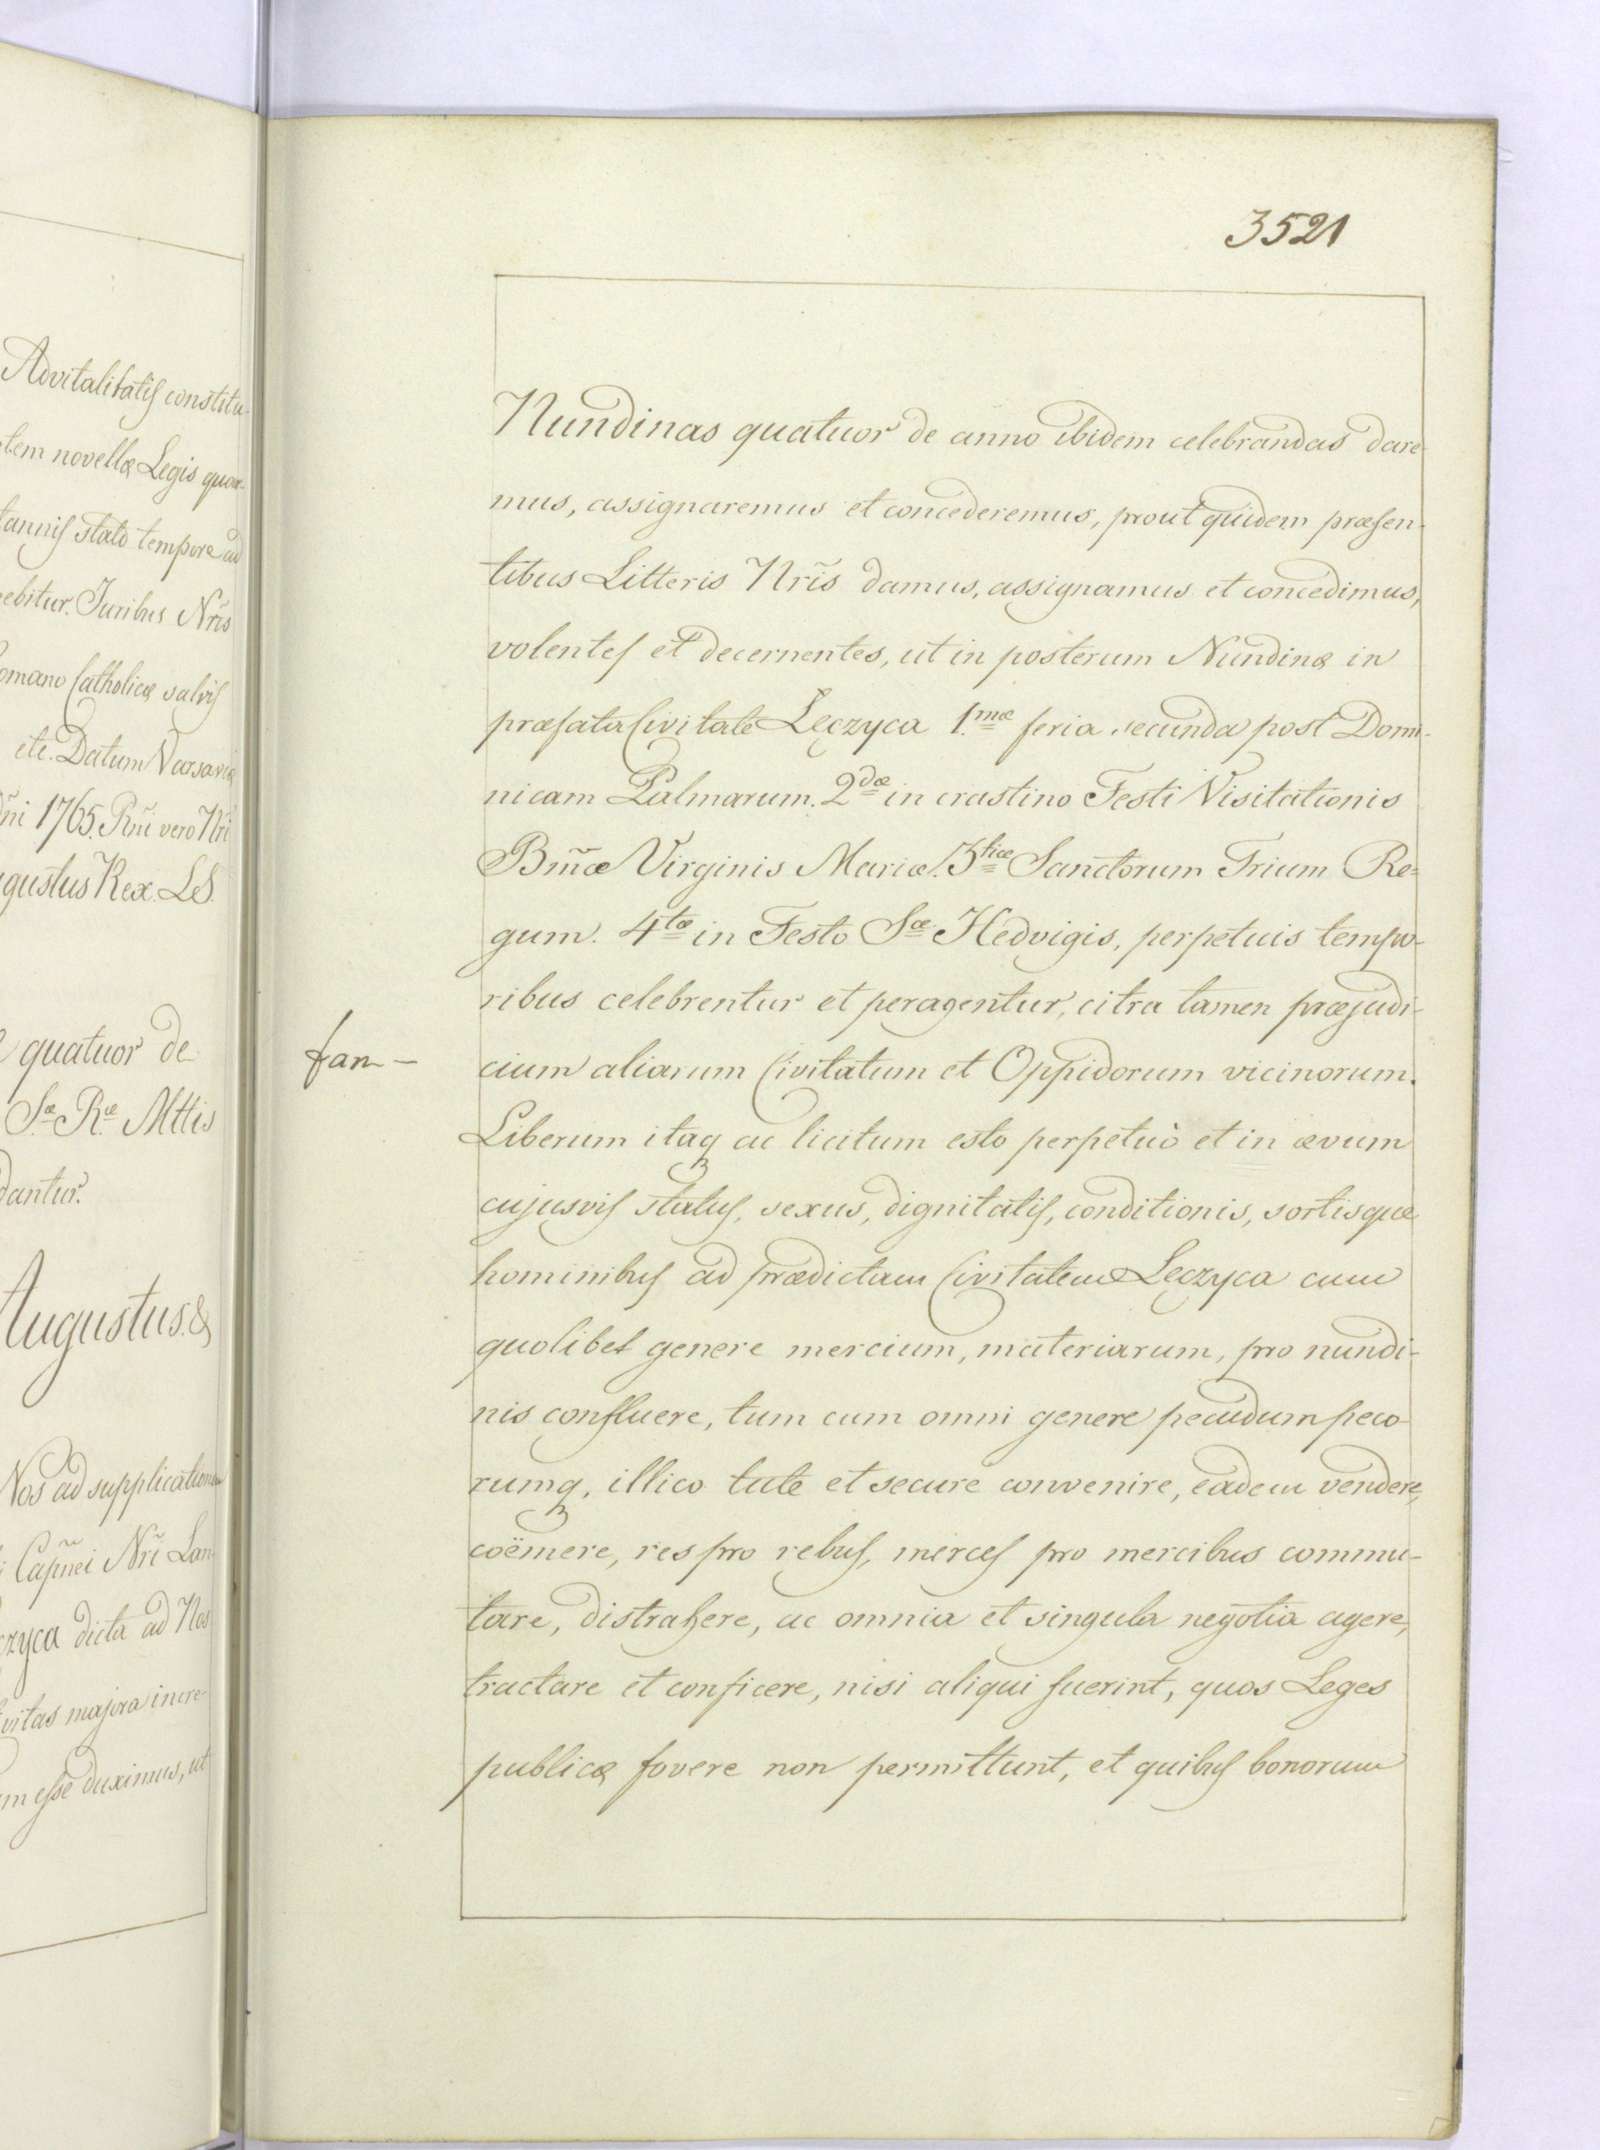 Advitalitatis constitu-
tem novellæ Legis quar-
tannis stato tempore ad
ebitur. Juribus Nr̃is
omano Catholicæ salvis
etc. Datum Varsaviæ
Dñi 1765. Rñi vero Nri
gustus Rex. LS.
quatuor de
Sæ Ræ Mttis
dantur.
Augustus. &
Nos ad supplicationem
Capñei Nr̃i Lan-
czyca dicta ad Nos
vitas majora incre-
m esse duximus, ut
3521
Nundinas quatuor de anno ibidem celebrandas dare-
mus, assignaremus et concederemus, prout quidem præsen-
tibus Litteris Nr̃is damus, assignamus et concedimus,
volentes et decernentes, ut in posterum Nundinæ in
præfata Civitate Lęczyca 1.mæ feria secunda post Domi-
nicam Palmarum. 2dæ in crastino Festi Visitationis
Bm̃æ Virginis Mariæ. 3tiæ Sanctorum Trium Re-
gum. 4tæ in Festo Sæ Hedvigis, perpetuis tempo-
ribus celebrentur et peragentur, citra tamen præjudi-
fan-
cium aliarum Civitatum et Oppidorum vicinorum.
Liberum itaq ac licitum esto perpetuò et in ævum
cujusvis status, sexus, dignitatis, conditionis, sortisque
hominibus ad prædictam Civitatem Lęczyca cum
quolibet genere mercium, materiarum, pro nundi-
nis confluere, tum cum omni genere pecudum peco-
rumq, illico tute et secure convenire, eadem vendere,
coëmere, res pro rebus, merces pro mercibus commu-
tare, distrahere, ac omnia et singula negotia agere,
tractare et conficere, nisi aliqui fuerint, quos Leges
publicæ fovere non permittunt, et quibus bonorum